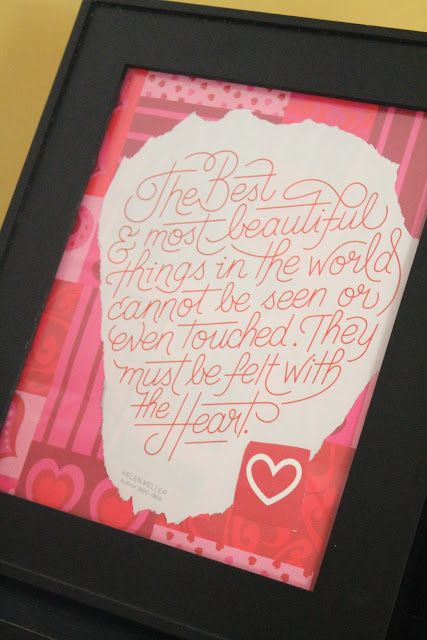 The Best
& most beautiful
things in the world
cannot be seen or
even touched. They
must be felt with
the Heart.
HELEN KELLER
Author 1880-1968